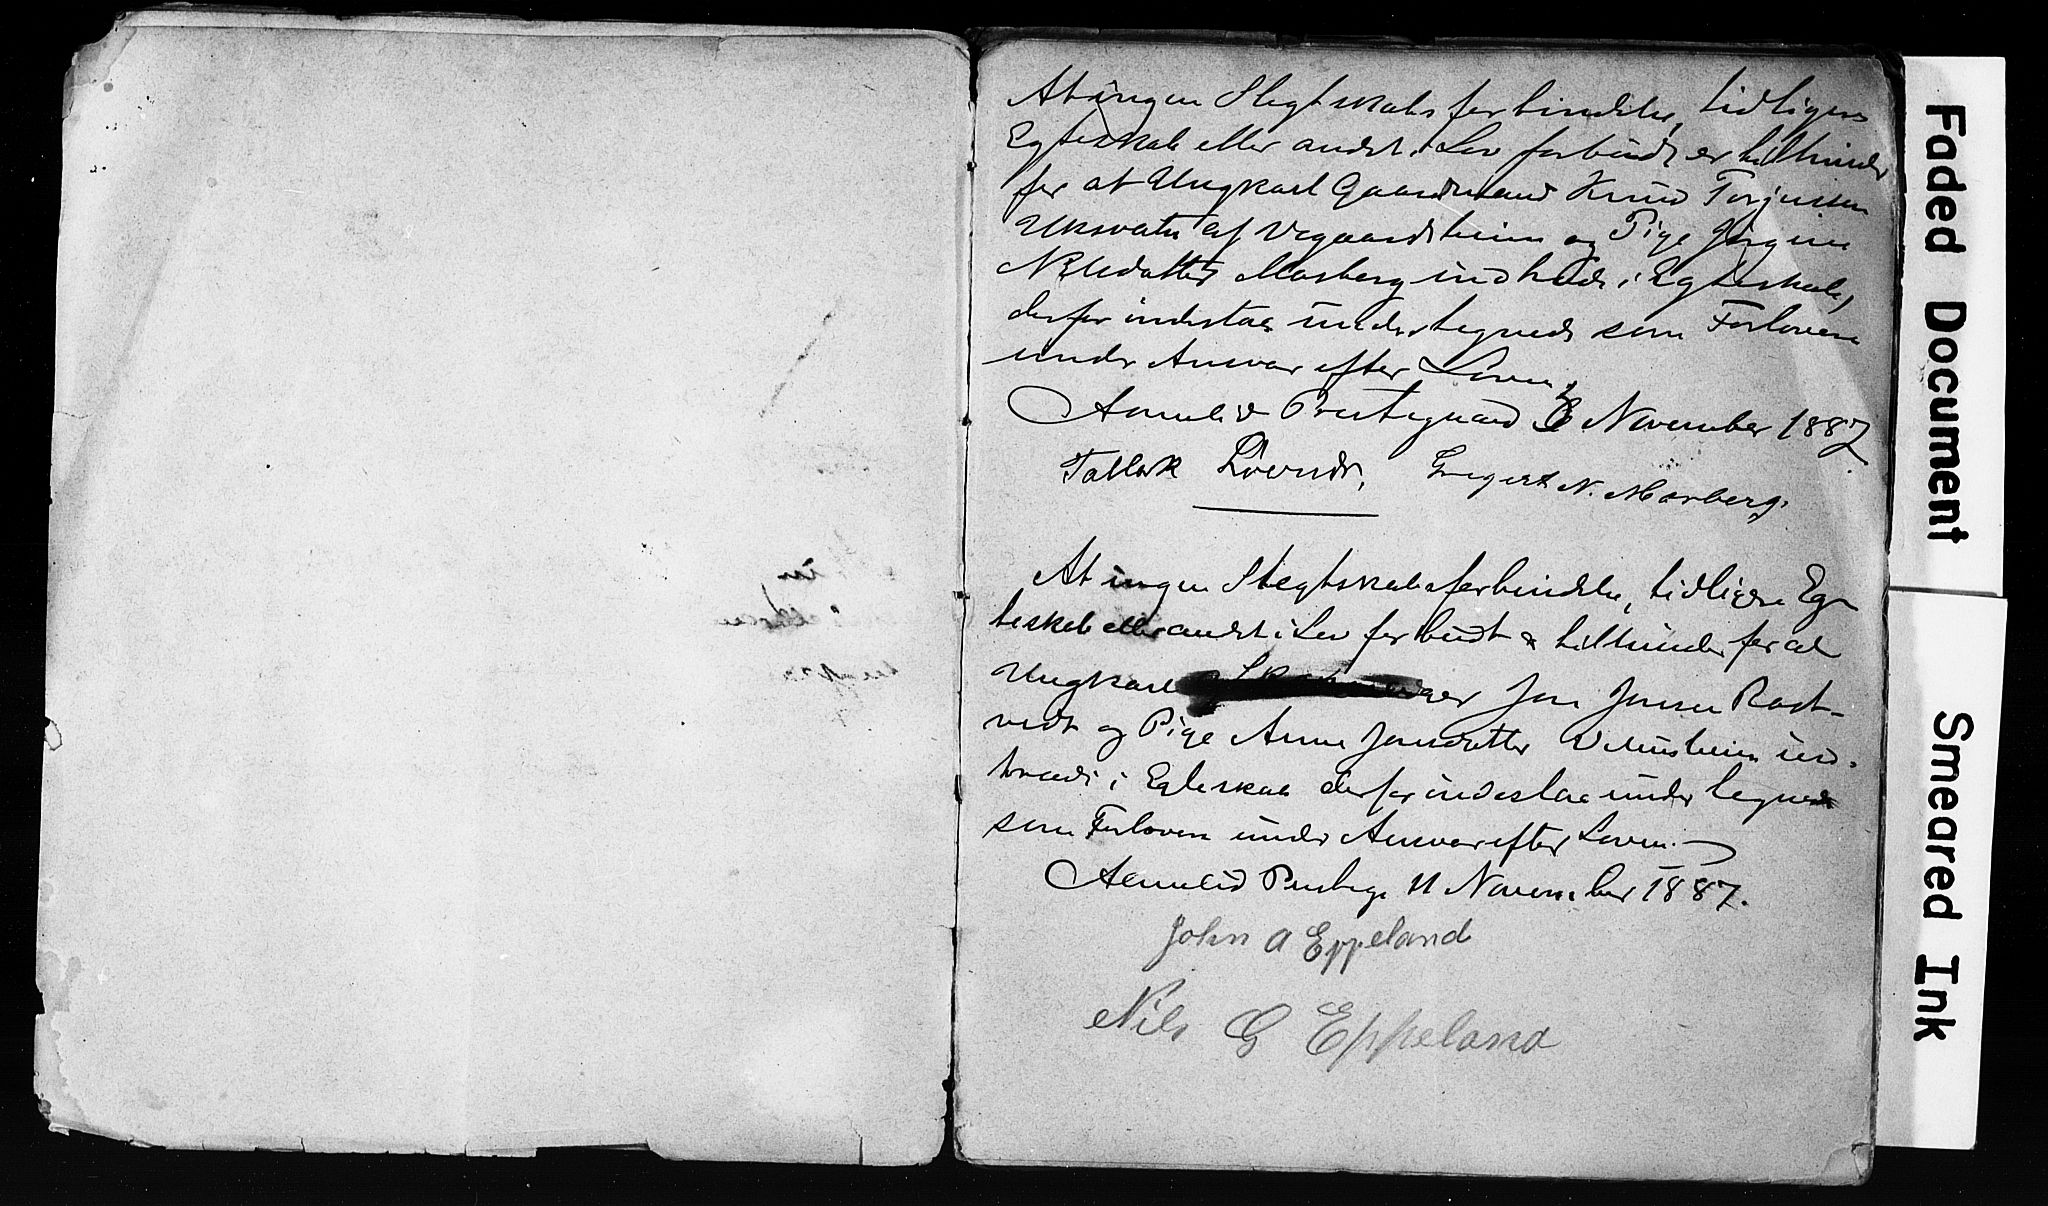 At ingen Slegtskabsforbindelse, tidligere
Egteskab eller andet i Lov forbudt er til Hinder
for at Ungkarl Gaardmand Knud Torjussen
Uksvatn af Vegaardsheien og Pige Jørgine
Nilsdatter Morberg indtræde i Egteskab,
derfor indestaa undertegnede som Forlovere
under Ansvar efter Loven,
Aamlid Prestegaard November 1887.
N. Morberg.
At ingen Slegtskabsforbindelse, tidligere Eg-
teskab eller andet i Lov forbudt er til Hinder for at
Ungkarl Jon Jonsen Rast-
vedt og Pige Anne Jonsdatter ind-
træde i Egteskab derfor indestaa undertegnede
som Forlovere under Ansvar efter Loven.
Aamlid Prestegd 11 November 1887.
John A Eppeland
Nils G Eppeland
Faded Document
Smeared Ink